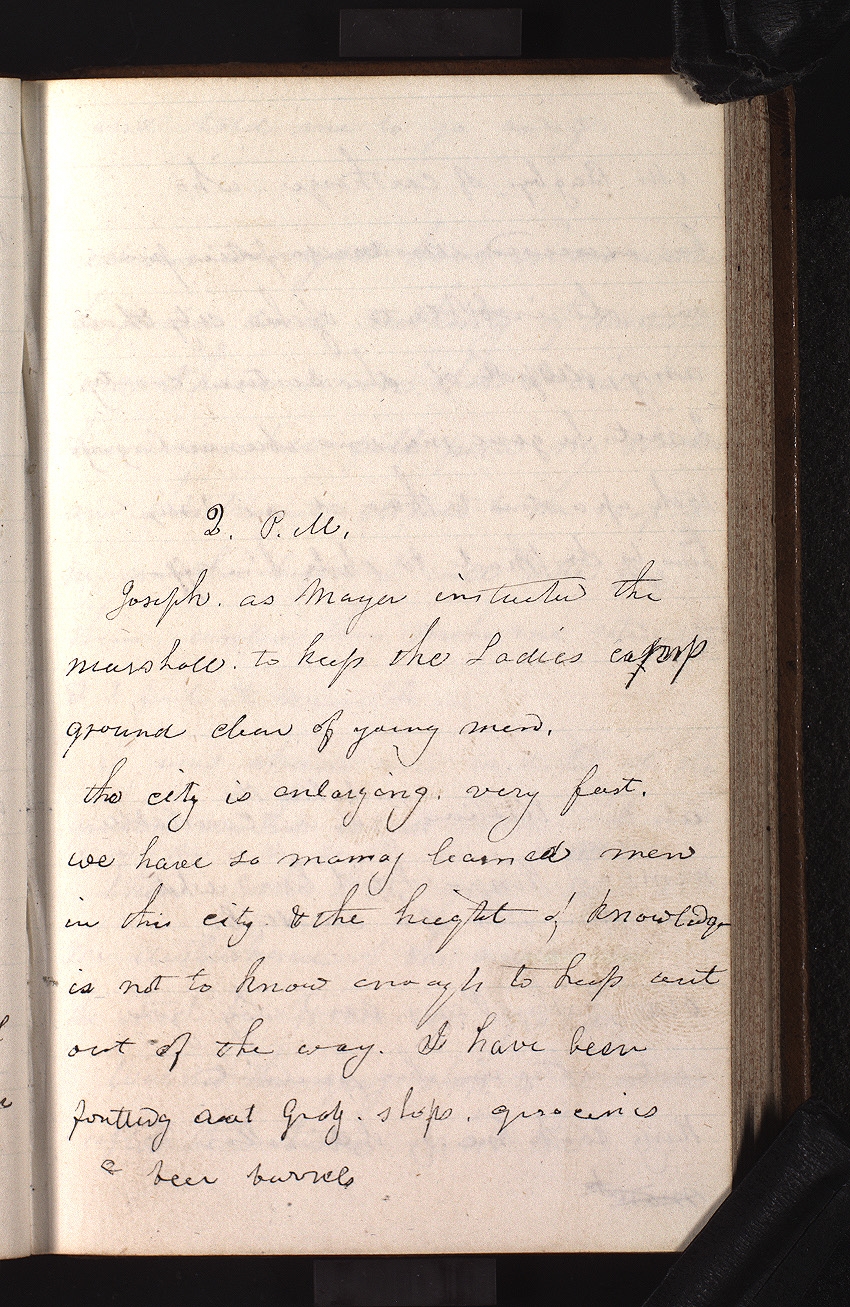 2. P.M.
Joseph. as Mayer instructed the
marshall. to keep the Ladies camp
ground clear of young men.
the city is enlarging. very fast.
we have so many learned men
in this city. & the hieght of knowledge
is not to know enough to keep out
out of the way. I have been
out Grog. shops. groceries
& beer barrels